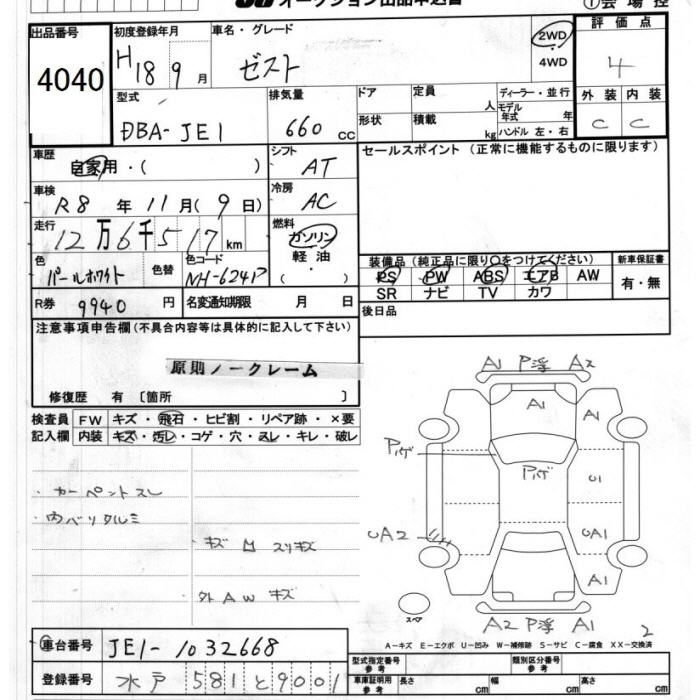 オークション出品申込書
①会場控
出品番号
4040
初度登録年月
H18 9 月
車名・グレード
ゼスト
2WD
・
4WD
評価点
4
外装 内装
C C
型式
DBA-JE1
排気量
660 cc
ドア
形状
定員 人
積載 kg
ディーラー・並行
モデル年式 年
ハンドル 左・右
車歴
自家用・( )
シフト
AT
セールスポイント (正常に機能するものに限ります)
車検
R8 年 11 月 ( 9 日)
冷房
AC
走行
12 万 6 千 5 1 7 km
燃料
ガソリン
軽油
・
( )
色
パールホワイト
色替
色コード
NH-624P
装備品 (純正品に限り○をつけてください)
新車保証書
PS PW ABS エアB AW
有・無
SR ナビ TV カワ
R券 9940 円
名変通知期限 月 日
後日品
注意事項申告欄 (不具合内容等は具体的に記入して下さい)
原則ノークレーム
修復歴 有 [箇所 ]
検査員 FW キズ・飛石・ヒビ割・リペア跡・×要
記入欄 内装 キズ・汚レ・コゲ・穴・スレ・キレ・破レ
・カーペントスレ
・内ベリクルミ
キズ 凹 スリキズ
外 AW キズ
A1 P浮 A2
A1
A1
Pハゲ
Pハゲ
U1
UA2
UA1
A1
スペア
A2 P浮 A1
2
A-キズ E-エクボ U-凹み W-補修跡 S-サビ C-腐食 XX-交換済
車台番号 JE1-1032668
登録番号 水戸 581 と 9001
型式指定番号
参考
類別区分番号
参考
車庫証明用
参考
長さ cm
幅 cm
高さ cm